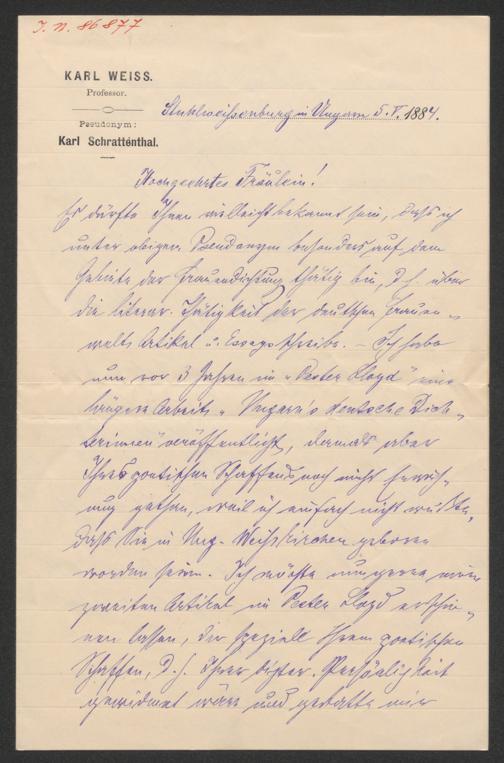 I. N. 86877
KARL WEISS.
Professor.
Pseudonym:
Karl Schrattenthal.
Stuhlweissenburg in Ungarn 5. V. 1884.
Hochgeehrtes Fräulein!
Es dürfte Ihnen vielleicht bekannt sein, dass ich
unter obigem Pseudonym besonders auf dem
Gebiete der Frauendichtung thätig bin, d. h. über
die literar. Thätigkeit der deutschen Frauen-
welt Artikel u. Essays schreibe. – Ich habe
nun vor 3 Jahren im „Pester Lloyd" eine
längere Arbeit „Ungarn's deutsche Dich-
terinnen" veröffentlicht, damals aber
Ihres poetischen Schaffens noch nicht Erwäh-
nung gethan, weil ich einfach nicht wußte,
daß Sie in Ung. Weißkirchen geboren
worden seien. Ich möchte nun gerne einen
zweiten Artikel im Pester Lloyd erschei-
nen lassen, der speziell Ihrem poetischen
Schaffen, d. h. Ihrer dichter. Persönlichkeit
gewidmet wäre und gestatte mir